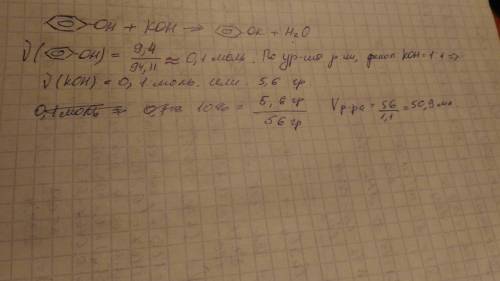 -OH + KOH → -OK + H₂O
ν(-OH) = 9,4/94,11 ≈ 0,1 моль. По ур-нию р-ии, фенол KOH = 1:1 =>
ν(KOH) = 0,1 моль. или 5,6 гр
10% = 5,6 гр/56 гр V р-ра = 56/1,1 = 50,9 мл